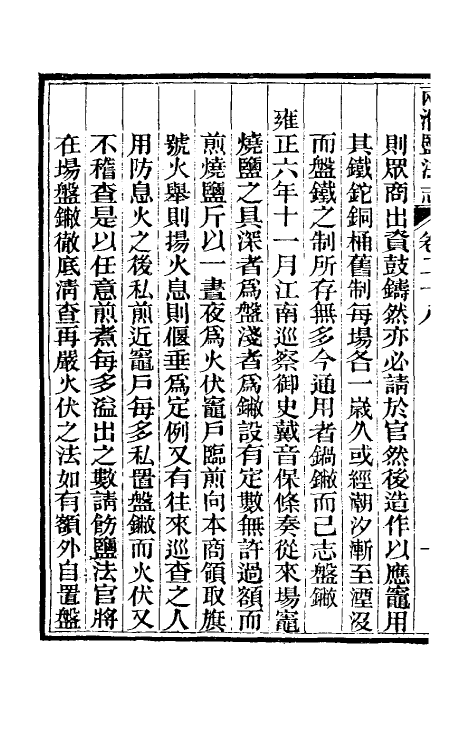 兩淮鹽法志 卷二十八 一
則眾商出資鼓鑄然亦必請於官然後造作以應竈用
其鐵鉈銅桶舊制每場各一歲久或經潮汐漸至湮沒
而盤鐵之制所存無多今通用者鍋䥕而已志盤䥕
雍正六年十一月江南巡察御史戴音保條奏從來場竈
燒鹽之具深者爲盤淺者爲䥕設有定數無許過額而
煎燒鹽斤以一晝夜爲火伏竈戶臨煎向本商領取旗
號火舉則揚火息則偃垂爲定例又有往來巡查之人
用防息火之後私煎近竈戶每多私置盤䥕而火伏又
不稽查是以任意煎煮每多溢出之數請飭鹽法官將
在場盤䥕徹底清查再嚴火伏之法如有額外自置盤